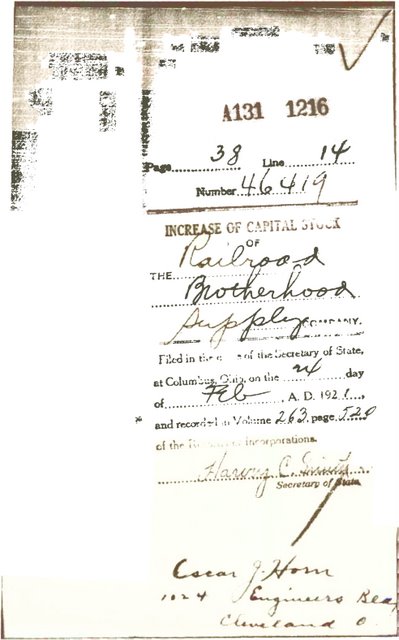 A131 1216
Page 38 Line 14
Number 46419
INCREASE OF CAPITAL STOCK
OF
THE Railroad
Brotherhood
Supply COMPANY.
Filed in the of the Secretary of State,
at Columbus, Ohio, on the 24 day
of Feb , A. D. 1921,
and recorded in Volume 263, page 520
of the Records of Incorporations.
Harvey C. Smith
Secretary of State
Oscar J. Horn
1024 Engineers Bldg
Cleveland O.